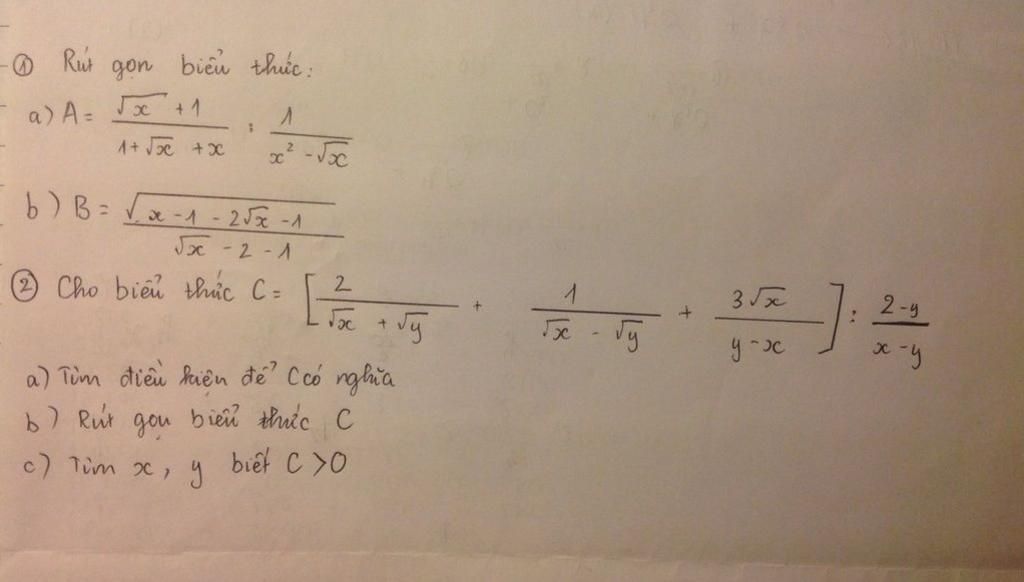 ① Rút gọn biểu thức:
a) A = (√x + 1)/(1 + √x + x) : 1/(x² - √x)
b) B = √(x - 1 - 2√x - 1)/(√x - 2 - 1)
② Cho biểu thức C = [2/(√x + √y) + 1/(√x - √y) + 3√x/(y - x)] : (2 - y)/(x - y)
a) Tìm điều kiện để C có nghĩa
b) Rút gọn biểu thức C
c) Tìm x, y biết C > 0